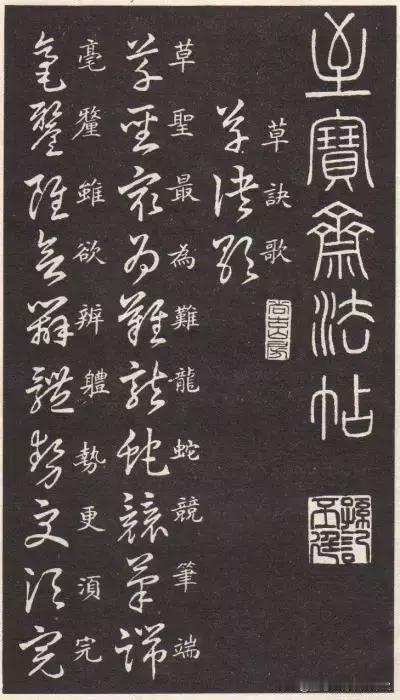 至寶齋法帖
草訣歌
草訣歌
尚古山房
草聖最為難龍蛇競筆端
草聖最為難龍蛇競筆端
毫釐雖欲辨軆勢更湏完
毫釐雖欲辨體勢更須完